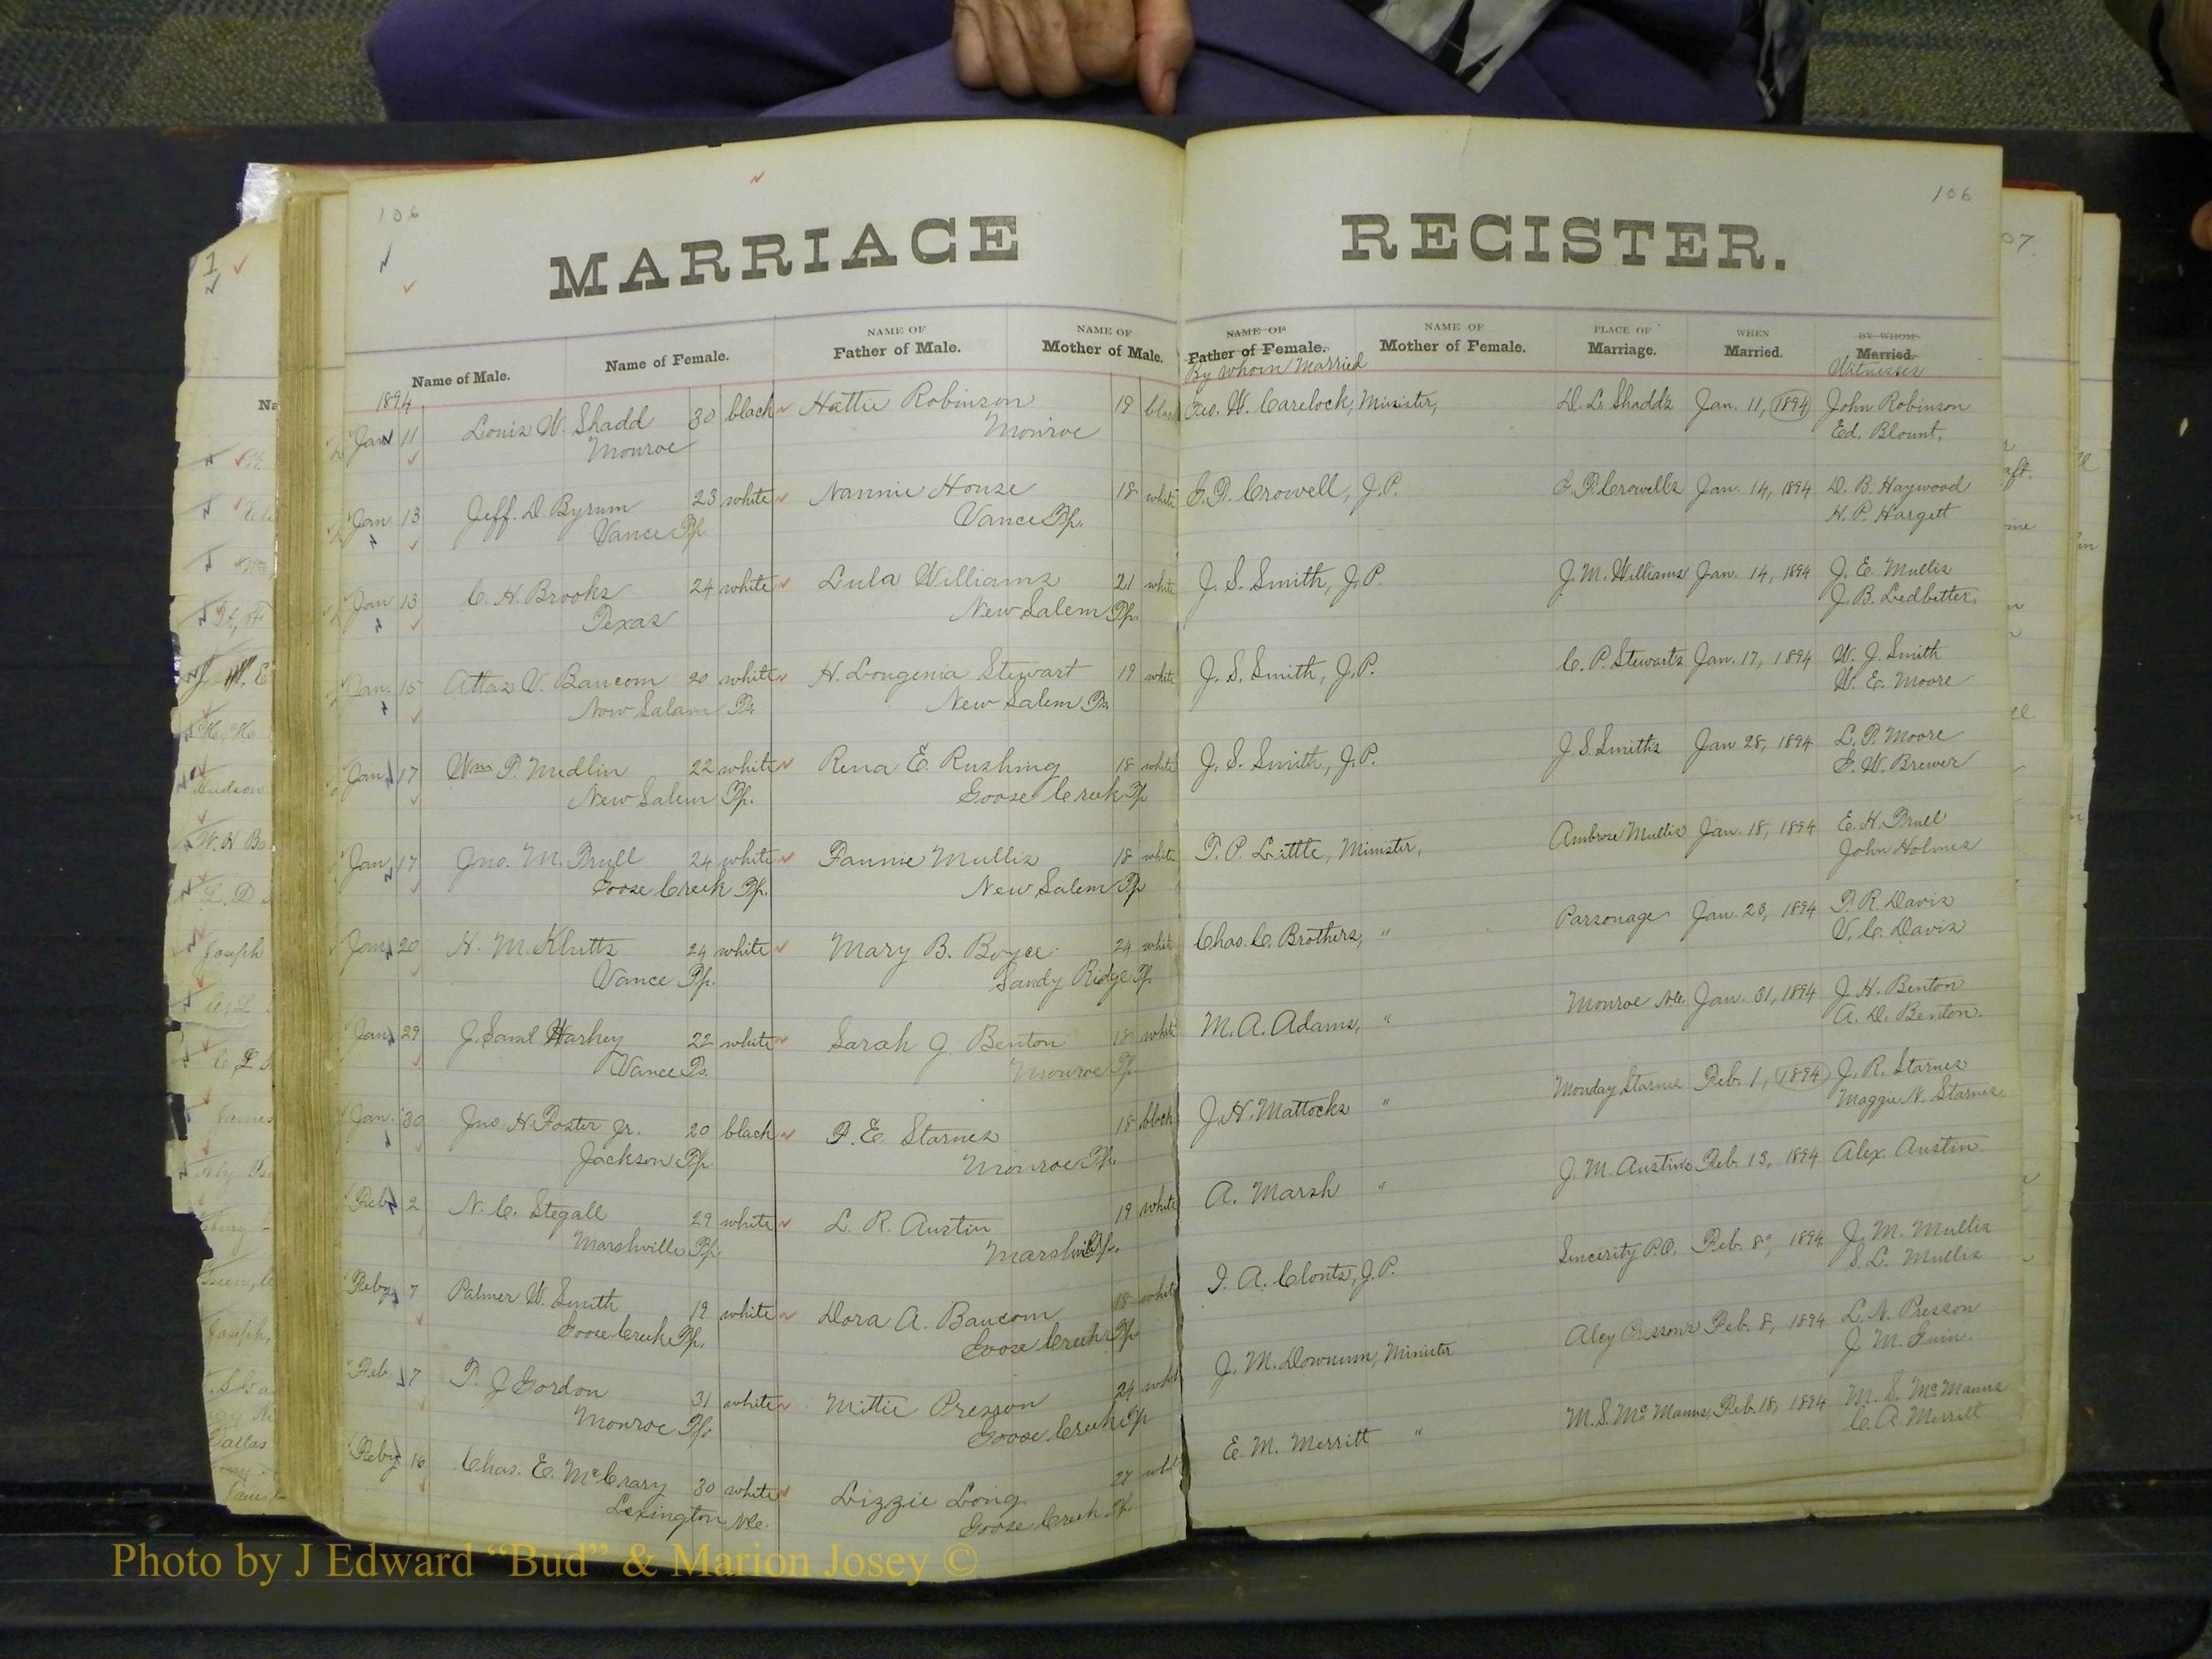 106
106
MARRIAGE REGISTER.
Name of Male.
Name of Female.
NAME OF
Father of Male.
NAME OF
Mother of Male.
NAME OF
Father of Female.
By Whom Married
NAME OF
Mother of Female.
PLACE OF
Marriage.
WHEN
Married.
BY WHOM
Married.
Witnesses
1894
Jan 11 Louis W. Shadd 30 black Hattie Robinson 19 black Geo. W. Carelock, Minister, D. L. Shadd's Jan. 11, 1894 John Robinson
Monroe Monroe Ed. Blount.
Jan. 13 Jeff. D Byrum 23 white Nannie House 18 white G. D. Crowell, J.P. Jan. 14, 1894 D. B. Haywood
Vance Tp. Vance Tp. H. P. Hargett
Jan 13 C. H. Brooks 24 white Lula Williams 21 white J. S. Smith, J.P. J. M. Williams' Jan. 14, 1894 J. E. Mullis
Texas New Salem Tp. J. B. Ledbetter.
Jan. 15 Attas V. Baucom 20 white H. Lougenia Stewart 19 white J. S. Smith, J.P. C. P. Stewarts Jan. 17, 1894 W. J. Smith
New Salem Tp. New Salem Tp. W. E. Moore
Jan 17 Wm P. Medlin 22 white Rena E. Rushing 18 white J. S. Smith, J.P. J. S. Smith's Jan 28, 1894 L. P. Moore
New Salem Tp. Goose Creek Tp G. W. Brewer
Jan 17 Jno. M. Trull 24 white Fannie Mullis 18 white T. P. Little, Minister, Ambrose Mullis Jan. 18, 1894 E. H. Trull
Goose Creek Tp. New Salem Tp John Holmes
Jan 20 H. M. Kluttz 24 white Mary B. Boyce 24 white Chas. C. Brothers, " Parsonage Jan. 23, 1894 T. R. Davis
Vance Tp. Sandy Ridge Tp V. C. Davis
Jan 29 J. Saml Harkey 22 white Sarah J. Benton 18 white M. A. Adams, " Monroe N.C. Jan. 31, 1894 J. H. Benton
Vance Tp. Monroe Tp. A. D. Benton.
Jan. 30 Jno. H. Foster Jr. 20 black P. E. Starnes 18 black J. H. Mattocks " Monday Starnes Feb. 1, 1894 J. R. Starnes
Jackson Tp. Monroe Tp. Maggie N. Starnes
Feb 2 N. C. Stegall 29 white L. R. Austin 19 white A. Marsh " J. M. Austins Feb. 13, 1894 Alex. Austin
Marshville Tp. Marshville Tp.
Feby 7 Palmer W. Smith 19 white Dora A. Baucom 18 white I. A. Clontz, J.P. Sincerity P.O. Feb. 8", 1894 J. M. Mullis
Goose Creek Tp. Goose Creek Tp S. L. Mullis
Feb. 7 T. J Gordon 31 white Mittie Presson 24 white J. M. Downum, Minister Presson's Feb. 8, 1894 L. N. Presson
Monroe Tp. Goose Creek Tp J. M. Guin.
Feby 16 Chas. E. McCrary 30 white Lizzie Long 27 white E. M. Merritt " M. S. McManus, Feb. 18, 1894 M. S. McManus
Lexington N.C. Goose Creek Tp. C. A. Merritt
Photo by J Edward “Bud” & Marion Josey ©